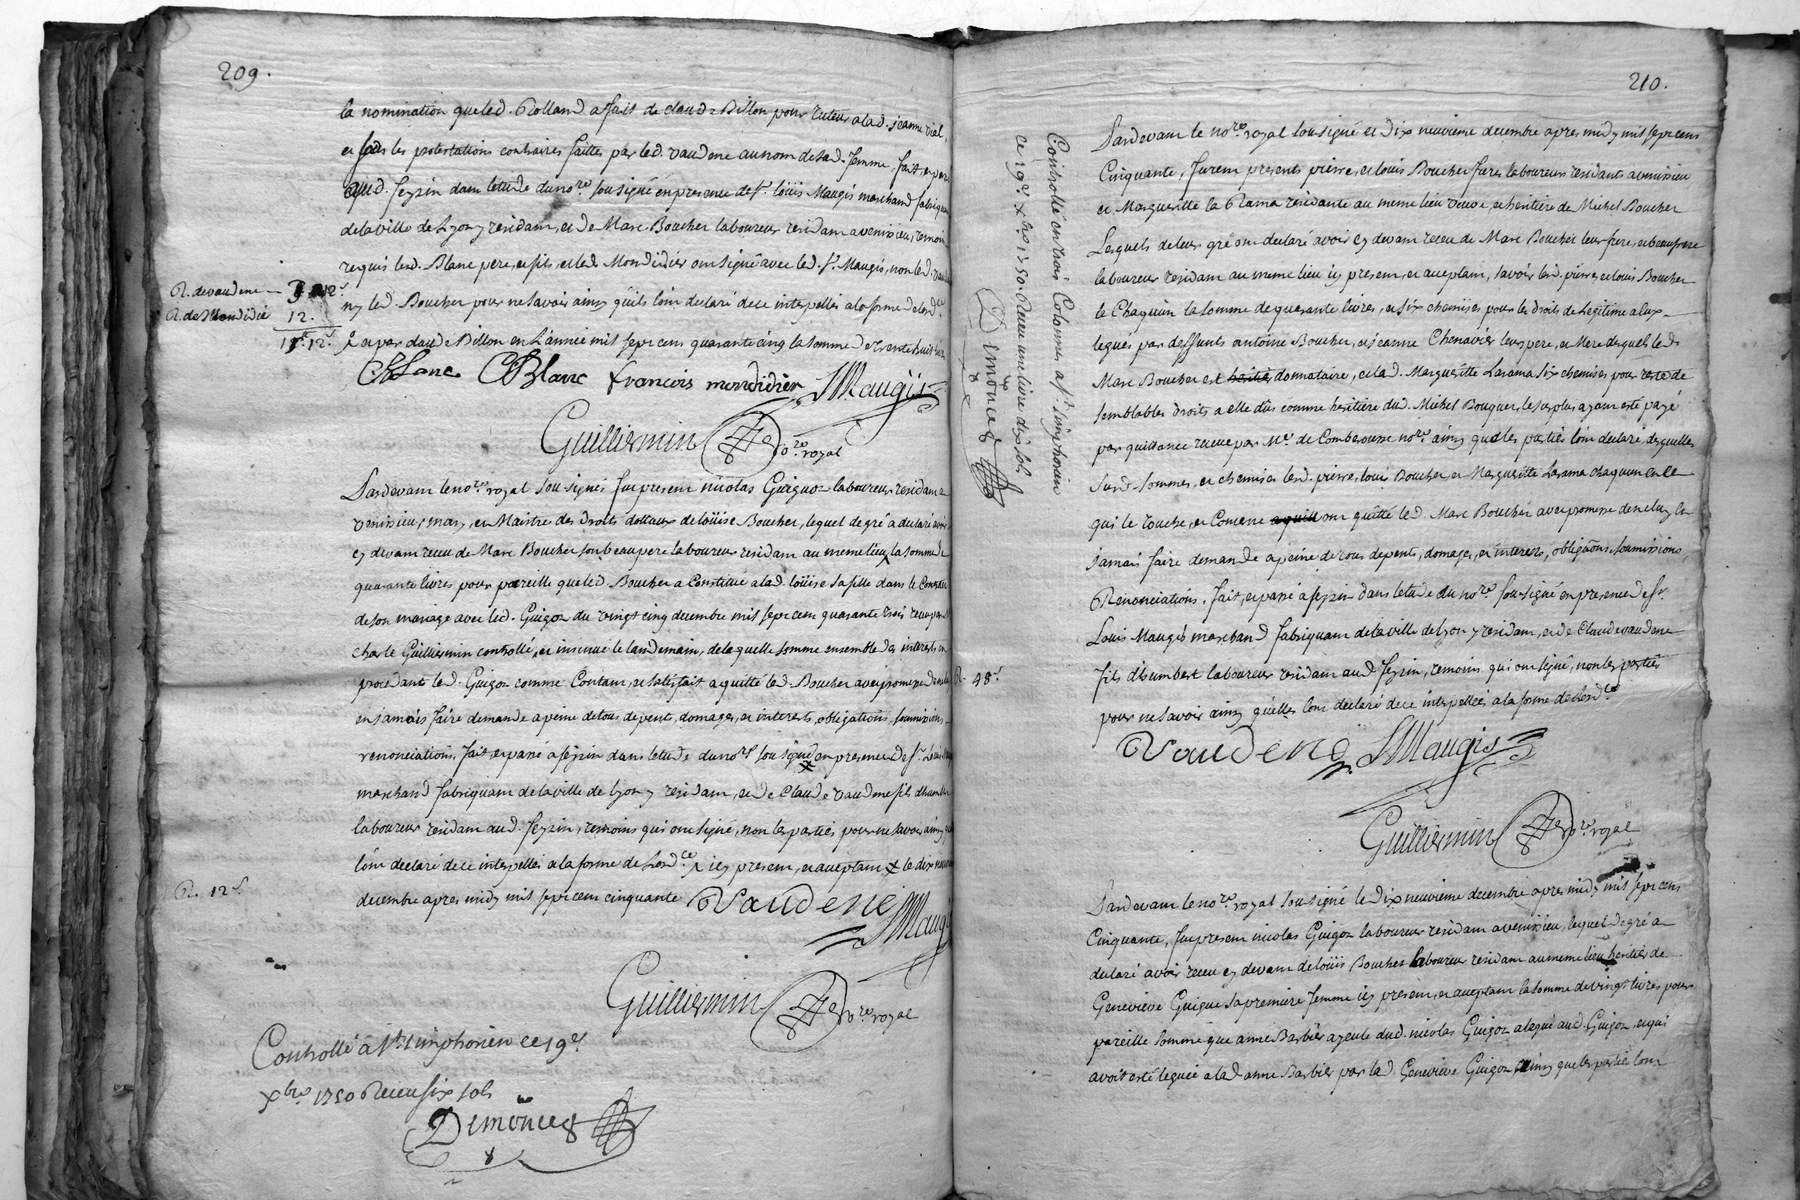 209.
la nomination queled. Rolland a fait de claude Billon pour tuteur alad. jeanne vial,
et sous les protestations contraires faittes par led. vaudene au nom desad. femme, fait, et passé
aud. feyzin dans letude du no.re sousigné en presence de s.r loüis Maugis marchand fabriquant
delaville de Lyon y residant, et de Marc Boucher laboureur residant a venissieu, temoins
requis lesd. Blanc pere, et fils, et led. Mondidier ont signé avec led. s.r Maugis, non led. vaudene
ny led. Boucher pour ne savoir ainsy quils lont declaré de ce interpellés ala forme delord.ce
R. de vaudene
R. de Mondidié 12.
et par claude Billon en L'année mil sept cens quarante cinq la somme de trente huit livres
CBlanc CBlanc francois mondidier LMaugis
Guilliermin no.re royal
Pardevant le no.re royal sousigné fut present nicolas Guigoz laboureur residant a
venissieu, mary, et Maitre des droits dottaux de loüise Boucher, lequel de gré a declaré avoir
cy devant receu de Marc Boucher son beau pere laboureur residant au meme lieu x la somme de
quarante livres pour pareille que led. Boucher a Constitué alad. loüise sa fille dans le Contrat
de son mariage avec led. Guigoz du vingt cinq decembre mil sept cent quarante trois receu par M.e
charle Guilliermin controllé, et insinué le landemain, de laquelle somme ensemble des interests en
procedants led. Guigoz comme Contant, et satisfait a quitté led. Boucher avec promesse de ne luy
en jamais faire demande a peine de tous depent, domages, et interests, obligations, soumissions,
renonciations, fait, et passé a feyzin dans letude du no.re sousigné en presence de s.r Louis Maugis
marchand fabriquant de la ville de lyon y residant, et de Claude vaudene fils dhumbert
laboureur residant aud. feyzin, temoins qui ont signé, non les parties pour ne savoir ainsy quelles
lont declaré de ce interpellés a la forme de Lord.ce x icy present, et acceptant x le dix neuvieme
R. 12 s.
decembre apres midy mil sept cent cinquante Vaudene LMaugis
Guilliermin no.re royal
Controllé à S.t Simphorien ce 19e.
xbre 1750 Receu six sols
Demonceq
210.
Controllé en trois Colomnes a s.t simphorien
ce 19e. xbre 1750. Receu une livre dix sols
Demonceq
Pardevant le no.re royal sousigné et dix neuvieme decembre apres midy mil sept cens
Cinquante, furent presents pierre, et louis Boucher frere laboureurs residants a venissieu
et Margueritte la Rama residante au meme lieu veuve, et heritiere de Michel Boucher
Lesquels de leur gré ont declaré avoir cy devant receu de Marc Boucher leur frere, et beaufrere
laboureur residant au meme lieu icy present, et acceptant, savoir lesd. pierre, et louis Boucher
le Chaquun la somme de quarante livres, et six chemises pour les droits de Legitime a eux
legués par deffunts antoine Boucher, et jeanne Chenavier leurs pere, et Mere desquels led.
Marc Boucher est heritier donnataire, et lad. Margueritte Larama six chemises pour reste de
semblables droits a elle dûs comme heritiere dud. Michel Bouquer, le surplus ayant esté payé
par quittance receue par M.e de Comberousse no.re ainsy que les parties lont declaré, desquelles
susd. sommes, et chemises lesd. pierre, loui Boucher, et Margueritte Larama chaquun en ce
qui le touche, et Concerne aquitt ont quitté led. Marc Boucher avec promesse de ne luy en
jamais faire demande a peine de tous depents, domages, et interests, obligãons, soumissions,
Renonciations, fait, et passé a feyzin dans letude du no.re sousigné en presence de s.r
Louis Maugis marchand fabriquant de la ville de lyon y residant, et de Claude vaudene
R. 48 s.
fils dhumbert laboureur residant aud. feyzin, temoins qui ont signé, non les parties
pour ne savoir ainsy quelles lont declaré de ce interpellées a la forme de lord.ce
Vaudene LMaugis
Guilliermin no.re royal
Pardevant le no.re royal sousigné le Dix neuvieme decembre apres midy mil sept cens
Cinquante, fut present nicolas Guigoz laboureur residant a venissieu, lequel de gré a
declaré avoir receu cy devant de loüis Boucher laboureur residant au meme lieu heritier de
Genevieve Guigue sa premiere femme icy present, et acceptant la somme de vingt livres pour
pareille somme que anne Barbier ayeule dud. nicolas Guigoz a legué aud. Guigoz, et qui
avoit esté leguée a lad. anne Barbier par lad. Genevieve Guigoz, ainsy que les parties lont